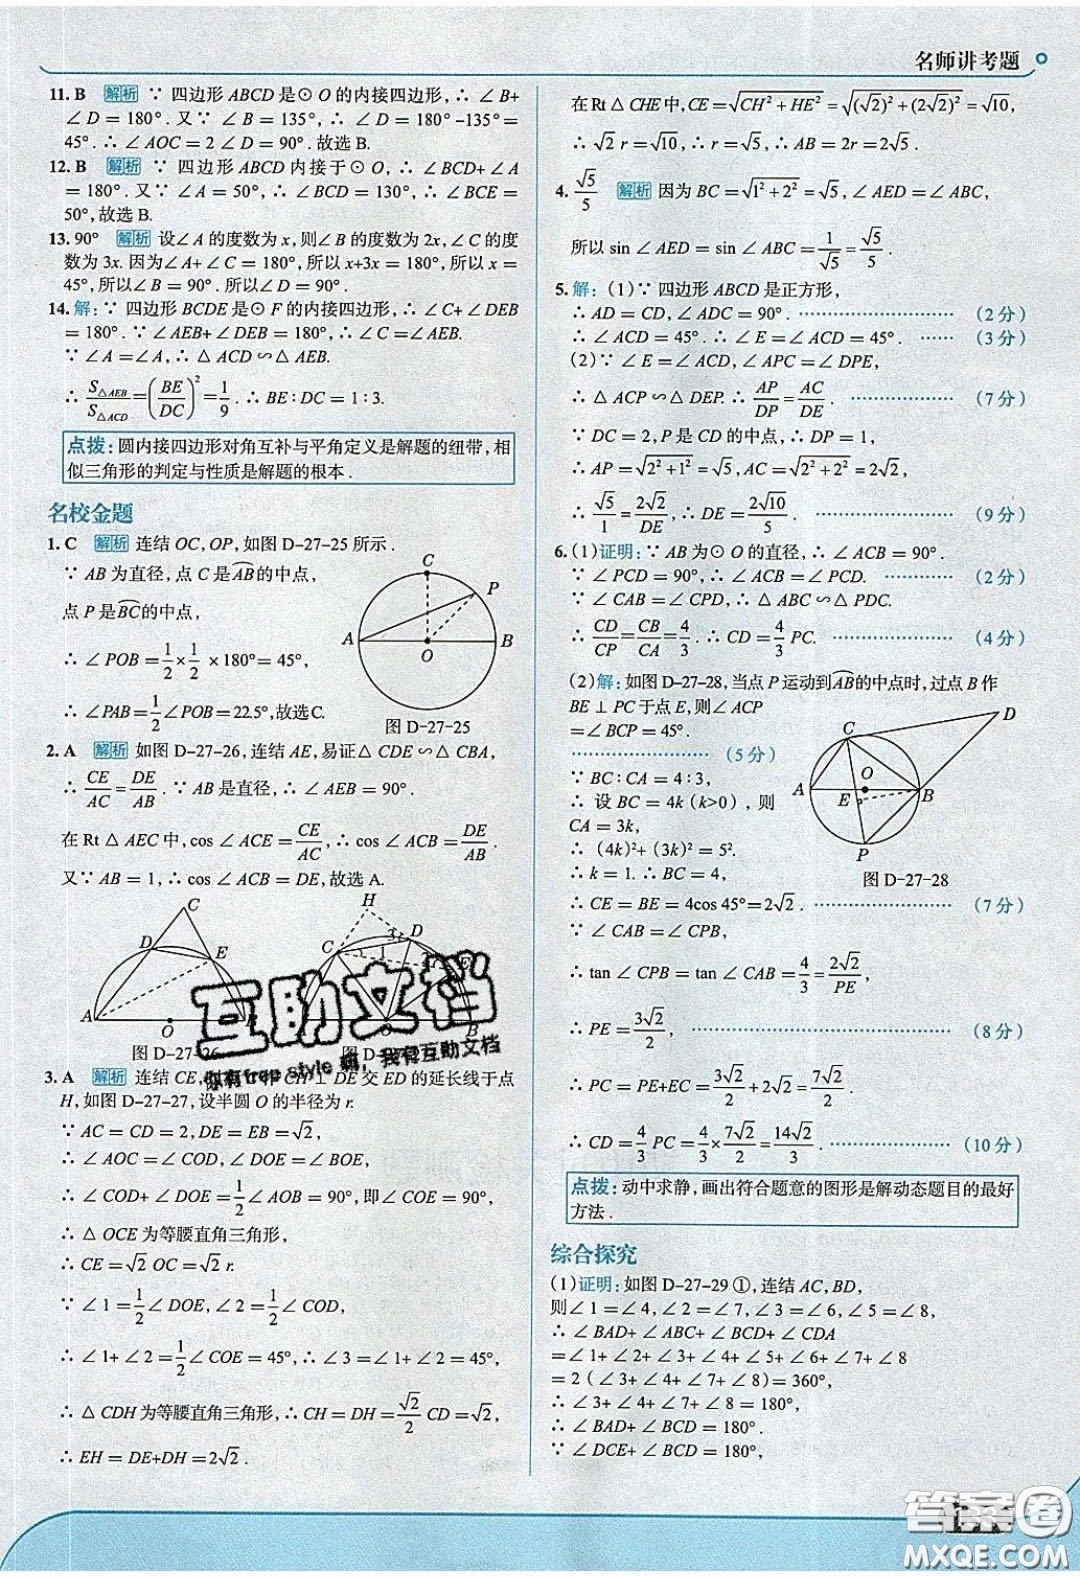 名师讲考题
11. B 解析 ∵ 四边形 ABCD 是⊙ O 的内接四边形,∴ ∠ B+
∠ D = 180°. 又∵ ∠ B = 135°,∴ ∠ D = 180° -135° =
45°. ∴ ∠ AOC = 2 ∠ D = 90°. 故选 B.
12. B 解析 ∵ 四边形 ABCD 内接于⊙ O,∴ ∠ BCD+ ∠ A
= 180°. 又∵ ∠ A = 50°,∴ ∠ BCD = 130°,∴ ∠ BCE =
50°,故选 B.
13. 90° 解析 设∠ A 的度数为 x,则∠ B 的度数为 2x,∠ C 的度
数为 3x. 因为∠ A+ ∠ C = 180°,所以 x+3x = 180°,所以 x =
45°,所以∠ B = 90°. 所以∠ D = 90°.
14. 解:∵ 四边形 BCDE 是⊙ F 的内接四边形,∴ ∠ C+ ∠ DEB
= 180°. ∵ ∠ AEB+ ∠ DEB = 180°,∴ ∠ C =∠ AEB.
∵ ∠ A =∠ A,∴ △ ACD ∽△ AEB.
∴ S△AEB/S△ACD = (BE/DC)² = 1/9. ∴ BE∶DC = 1∶3.
点拨:圆内接四边形对角互补与平角定义是解题的纽带,相
似三角形的判定与性质是解题的根本.
名校金题
1. C 解析 连结 OC, OP, 如图 D-27-25 所示.
∵ AB 为直径,点 C 是AB的中点,
点 P 是BC的中点,
∴ ∠ POB = 1/2 × 1/2 ×180° = 45°,
∴ ∠PAB = 1/2 ∠POB = 22.5°,故选C.
C
P
A
O
B
图 D-27-25
2. A 解析 如图 D-27-26,连结 AE,易证△ CDE ∽△ CBA,
∴ CE/AC = DE/AB. ∵ AB 是直径,∴ ∠ AEB = 90°.
在 Rt △ AEC 中, cos ∠ ACE = CE/AC, ∴ cos ∠ ACB = DE/AB.
又∵ AB = 1,∴ cos ∠ ACB = DE,故选 A.
C
D
E
A
O
图 D-27-26
H
D
C
3
1
E
O
B
图 D-
互助文档
你有free style 嘛,我有互助文档
3. A 解析 连结 CE, CH ⊥ DE 交 ED 的延长线于点
H,如图 D-27-27,设半圆 O 的半径为 r.
∵ AC = CD = 2, DE = EB =√2,
∴ ∠ AOC = ∠ COD, ∠ DOE = ∠ BOE,
∴ ∠ COD+ ∠ DOE = 1/2 ∠ AOB = 90°,即∠ COE = 90°,
∴ △ OCE 为等腰直角三角形,
∴ CE =√2 OC =√2 r.
∵ ∠ 1 = 1/2 ∠ DOE, ∠ 2 = 1/2 ∠ COD,
∴ ∠ 1+ ∠ 2 = 1/2 ∠ COE = 45°,∴ ∠ 3 =∠ 1+ ∠ 2 = 45°,
∴ △ CDH 为等腰直角三角形,∴ CH = DH = √2/2 CD =√2,
∴ EH = DE+DH = 2√2.
在 Rt △ CHE 中, CE =√(CH² + HE²) =√((√2)² + (2√2)²) =√10,
∴ √2 r =√10,∴ r =√5,∴ AB = 2r = 2√5.
4. √5/5 解析 因为 BC =√(1² + 2²) =√5, ∠ AED = ∠ ABC,
所以 sin ∠ AED = sin ∠ ABC = 1/√5 = √5/5.
5. 解:(1)∵ 四边形 ABCD 是正方形,
∴ AD = CD, ∠ ADC = 90°. (2 分)
∴ ∠ ACD = 45°. ∴ ∠ E = ∠ ACD = 45°. (3 分)
(2)∵ ∠ E = ∠ ACD, ∠ APC = ∠ DPE,
∴ △ ACP ∽△ DEP. ∴ AP/DP = AC/DE. (7 分)
∵ DC = 2, P 是 CD 的中点,∴ DP = 1,
∴ AP =√(2² + 1²) =√5, AC =√(2² + 2²) = 2√2,
∴ √5/1 = 2√2/DE, ∴ DE = 2√10/5. (9 分)
6. (1)证明:∵ AB 为⊙ O 的直径,∴ ∠ ACB = 90°.
∵ ∠ PCD = 90°,∴ ∠ ACB = ∠ PCD. (2 分)
∵ ∠ CAB = ∠ CPD,∴ △ ABC ∽△ PDC.
∴ CD/CP = CB/CA = 4/3. ∴ CD = 4/3 PC. (4 分)
(2)解:如图 D-27-28,当点 P 运动到AB的中点时,过点 B 作
BE ⊥ PC 于点 E,则∠ ACP
=∠ BCP = 45°.
(5 分)
∵ BC∶CA = 4∶3,
∴ 设 BC = 4k (k>0), 则
CA = 3k,
∴ (4k)²+ (3k)² = 5².
∴ k = 1. ∴ BC = 4,
C
D
A
O
E
B
P
图 D-27-28
∴ CE = BE = 4cos 45° = 2√2. (7 分)
∵ ∠ CAB = ∠ CPB,
∴ tan ∠ CPB = tan ∠ CAB = 4/3 = 2√2/PE,
∴ PE = 3√2/2, (8 分)
∴ PC = PE+EC = 3√2/2 + 2√2 = 7√2/2.
∴ CD = 4/3 PC = 4/3 × 7√2/2 = 14√2/3. (10 分)
点拨:动中求静,画出符合题意的图形是解动态题目的最好
方法.
综合探究
(1)证明:如图 D-27-29 ①,连结 AC, BD,
则∠ 1 = ∠ 4, ∠ 2 = ∠ 7, ∠ 3 = ∠ 6, ∠ 5 = ∠ 8,
∴ ∠ BAD+ ∠ ABC+ ∠ BCD+ ∠ CDA
= ∠ 1+ ∠ 2+ ∠ 3+ ∠ 4+ ∠ 5+ ∠ 6+ ∠ 7+ ∠ 8
= 2 (∠ 3+ ∠ 4+ ∠ 7+ ∠ 8) = 360°,
∴ ∠ 3+ ∠ 4+ ∠ 7+ ∠ 8 = 180°,
∴ ∠ BAD+ ∠ BCD = 180°.
∵ ∠ DCE+ ∠ BCD = 180°,
答案圈
MXQE.COM